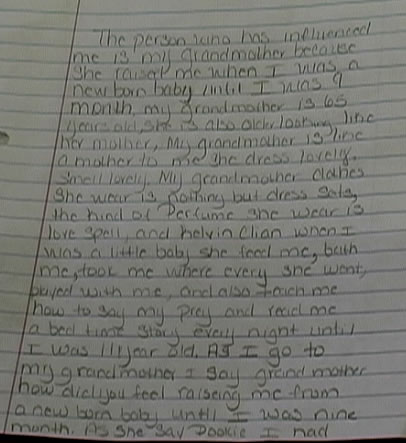 The person who has influenced
me is my grandmother because
she raised me when I was a
new born baby until I was 9
month, my grandmother is 65
years old, she is also older looking line
her mother, My grandmother is line
a mother to me she dress lovely,
smell lovely. My grandmother clothes
she wear is nothing but dress
the kind of Perfume she wear is
love spell, and kelvin Clian when I
was a little baby she feed me, bath
me, took me where every she went,
played with me, and also teach me
how to say my prey and read me
a bed time story every night until
I was 11 year old. As I go to
my grandmother I say grand mother
how did you feel raiseing me from
a new born baby until I was nine
month. As she say Pookie I had